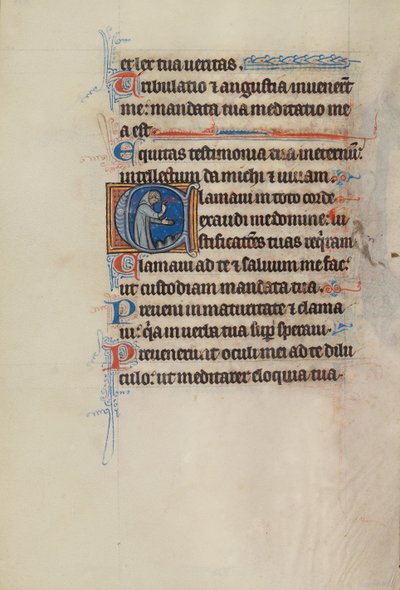 et lex tua veritas.
Tribulatio & angustia invener̄t
me: mandata tua meditatio me
a est
Equitas testimonia tua ineternu᷑:
intellectum da michi & vivam.
Clamavi in toto corde
exaudi me domine: iu
stificationes tuas req̄ram
Clamavi ad te & salvum me fac:
ut custodiam mandata tua.
Preveni in maturitate & clama
vi: q̄a in verba tua sup̄ speravi.
Prevenerunt oculi mei ad te dilu
culo: ut meditarer eloquia tua.